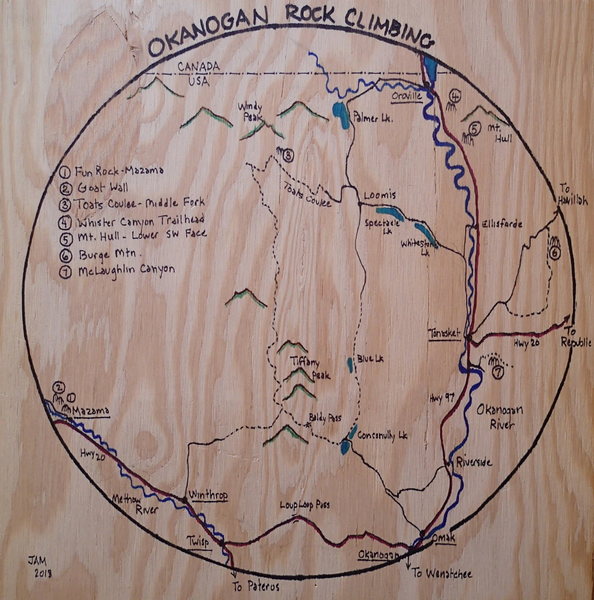 OKANOGAN ROCK CLIMBING
CANADA
USA
Windy
Peak
Palmer Lk.
Oroville
4
5
Mt.
Hull
3
Toats Coulee
Loomis
Spectacle
Lk
Whitestone
Lk
Ellisforde
To
Havillah
6
1 Fun Rock-Mazama
2 Goat Wall
3 Toats Coulee-Middle Fork
4 Whister Canyon Trailhead
5 Mt. Hull - Lower SW Face
6 Burge Mtn.
7 McLaughlin Canyon
Tonasket
Hwy 20
To
Republic
7
Tiffany
Peak
Blue Lk
Hwy 97
Okanogan
River
2
1
Mazama
Baldy Pass
Conconully Lk
Hwy 20
Riverside
Methow
River
Winthrop
Loup Loup Pass
Twisp
Omak
Okanogan
To Pateros
To Wenatchee
JAM
2018